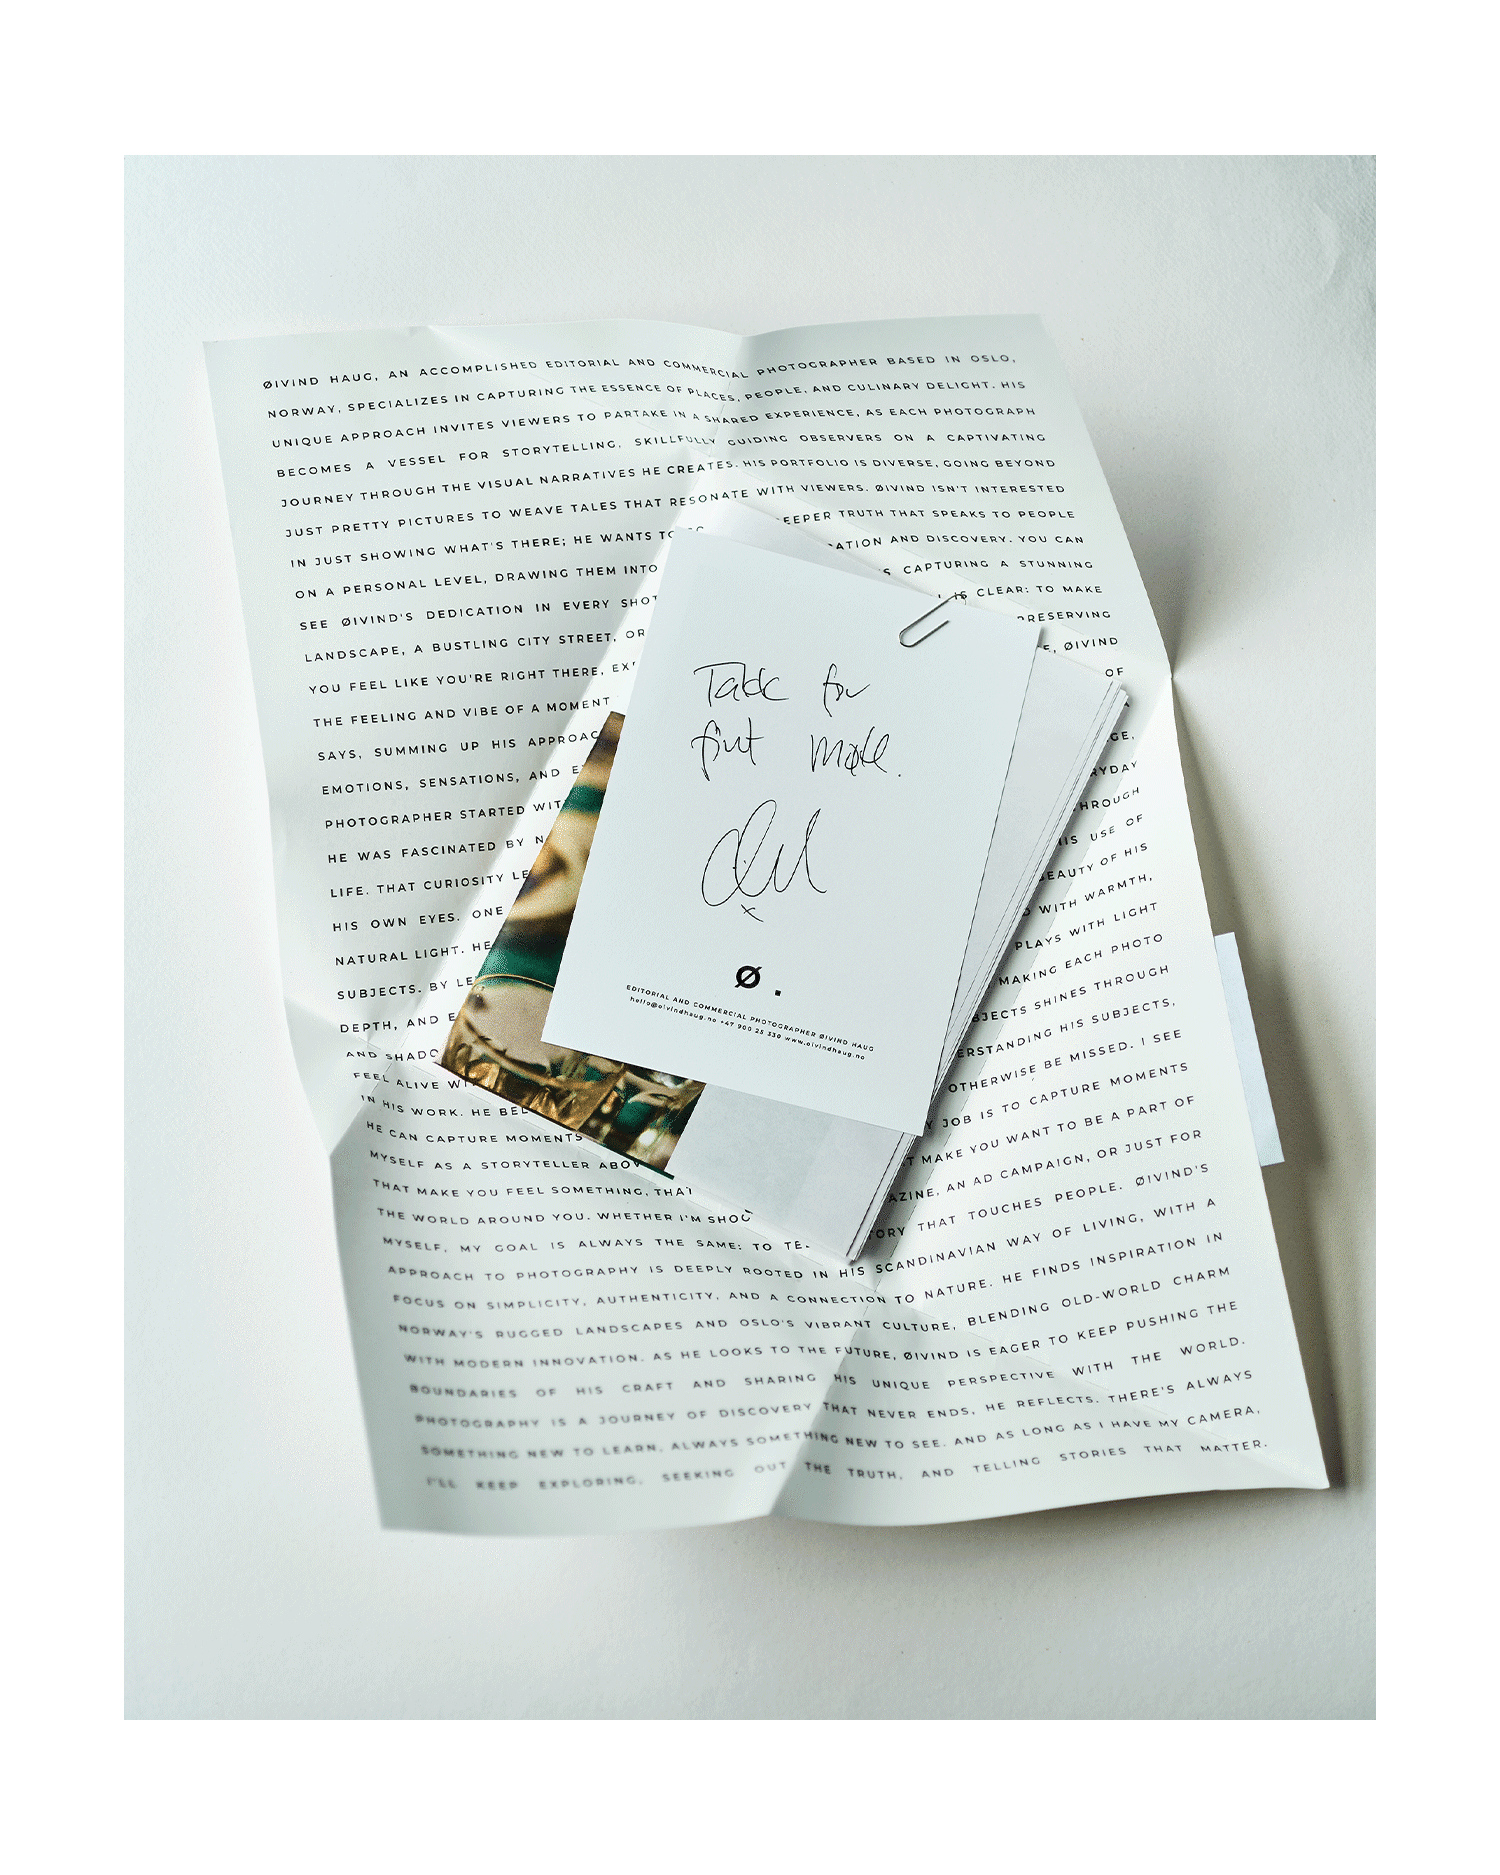 ØIVIND HAUG, AN ACCOMPLISHED EDITORIAL AND COMMERCIAL PHOTOGRAPHER BASED IN OSLO,
NORWAY, SPECIALIZES IN CAPTURING THE ESSENCE OF PLACES, PEOPLE, AND CULINARY DELIGHT. HIS
UNIQUE APPROACH INVITES VIEWERS TO PARTAKE IN A SHARED EXPERIENCE, AS EACH PHOTOGRAPH
BECOMES A VESSEL FOR STORYTELLING, SKILLFULLY GUIDING OBSERVERS ON A CAPTIVATING
JOURNEY THROUGH THE VISUAL NARRATIVES HE CREATES. HIS PORTFOLIO IS DIVERSE, GOING BEYOND
JUST PRETTY PICTURES TO WEAVE TALES THAT RESONATE WITH VIEWERS. ØIVIND ISN'T INTERESTED
IN JUST SHOWING WHAT'S THERE; HE WANTS TO TRUTH THAT SPEAKS TO PEOPLE
ON A PERSONAL LEVEL, DRAWING THEM INTO AND DISCOVERY. YOU CAN
SEE ØIVIND'S DEDICATION IN EVERY SHOT CAPTURING A STUNNING
LANDSCAPE, A BUSTLING CITY STREET, OR IS CLEAR: TO MAKE
YOU FEEL LIKE YOU'RE RIGHT THERE, PRESERVING
THE FEELING AND VIBE OF A MOMENT ØIVIND
SAYS, SUMMING UP HIS OF
EMOTIONS, SENSATIONS, AND
PHOTOGRAPHER STARTED
HE WAS FASCINATED BY
LIFE. THAT CURIOSITY
HIS OWN EYES. ONE USE OF
NATURAL LIGHT. HE BEAUTY OF HIS
SUBJECTS. BY WITH WARMTH,
DEPTH, AND PLAYS WITH LIGHT
AND MAKING EACH PHOTO
FEEL ALIVE SHINES THROUGH
IN HIS WORK. HE HIS SUBJECTS,
HE CAN CAPTURE MOMENTS OTHERWISE BE MISSED. I SEE
MYSELF AS A STORYTELLER JOB IS TO CAPTURE MOMENTS
THAT MAKE YOU FEEL SOMETHING, THAT MAKE YOU WANT TO BE A PART OF
THE WORLD AROUND YOU. WHETHER I'M AN AD CAMPAIGN, OR JUST FOR
MYSELF, MY GOAL IS ALWAYS THE SAME: TO THAT TOUCHES PEOPLE. ØIVIND'S
APPROACH TO PHOTOGRAPHY IS DEEPLY ROOTED IN HIS SCANDINAVIAN WAY OF LIVING, WITH A
FOCUS ON SIMPLICITY, AUTHENTICITY, AND A CONNECTION TO NATURE. HE FINDS INSPIRATION IN
NORWAY'S RUGGED LANDSCAPES AND OSLO'S VIBRANT CULTURE, BLENDING OLD-WORLD CHARM
WITH MODERN INNOVATION. AS HE LOOKS TO THE FUTURE, ØIVIND IS EAGER TO KEEP PUSHING THE
BOUNDARIES OF HIS CRAFT AND SHARING HIS UNIQUE PERSPECTIVE WITH THE WORLD.
PHOTOGRAPHY IS A JOURNEY OF DISCOVERY THAT NEVER ENDS, HE REFLECTS. THERE'S ALWAYS
SOMETHING NEW TO LEARN, ALWAYS SOMETHING NEW TO SEE. AND AS LONG AS I HAVE MY CAMERA,
I'LL KEEP EXPLORING, SEEKING OUT THE TRUTH, AND TELLING STORIES THAT MATTER.
Takk for
fint møte.
Ø.
EDITORIAL AND COMMERCIAL PHOTOGRAPHER ØIVIND HAUG
hello@oivindhaug.no +47 900 25 330 www.oivindhaug.no